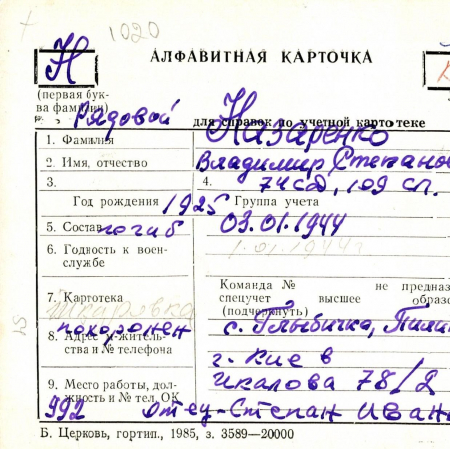 1020
Н
АЛФАВИТНАЯ КАРТОЧКА
(первая бук-
ва фамилии)
Рядовой для справок по учетной картотеке
1. Фамилия Назаренко
2. Имя, отчество Владимир Степанов
3. 4. 74 сд, 109 сп.
Год рождения 1925 Группа учета
5. Состав погиб 03.01.1944
6. Годность к воен-
службе 1.01.1944г
Команда № не предназ
7. Картотека спецучет высшее образо
Шкаровка (подчеркнуть)
похоронен с. Глыбичка, Пили
8. Адрес м-житель-
ства и № телефона г. Киев
Чкалова 78/2
9. Место работы, дол-
жность и № тел. ОК
992 отец-Степан Иван
Б. Церковь, гортип., 1985, з. 3589—20000